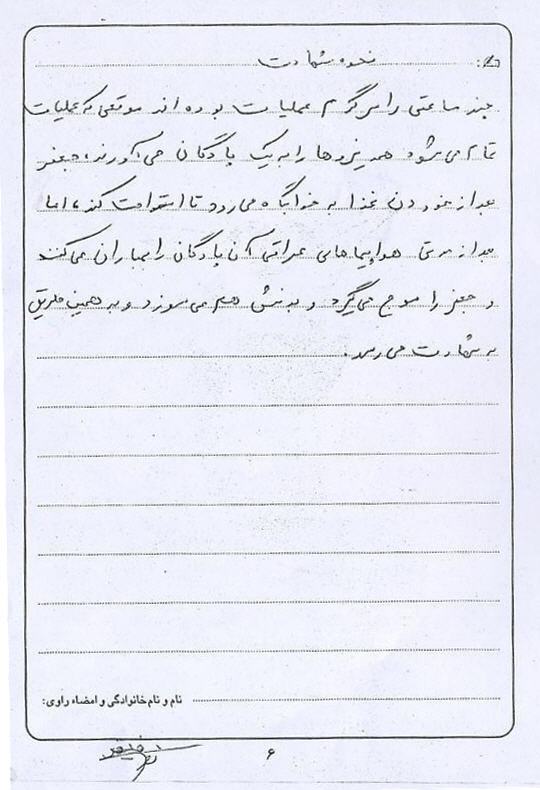 نحوه شهادت
چند ساعتی را سرگرم عملیات بوده اند موقعی که عملیات
تمام می شود همه نیروها را به یک پادگان می آورند، جعفر
بعد از خوردن غذا به خوابگاه می رود تا استراحت کند، اما
بعد از مدتی هواپیماهای عراقی آن پادگان را بمباران می کنند
و جعفر را موج می گیرد و بدنش هم می سوزد و به همین طریق
به شهادت می رسد.
نام و نام خانوادگی و امضاء راوی:
۶